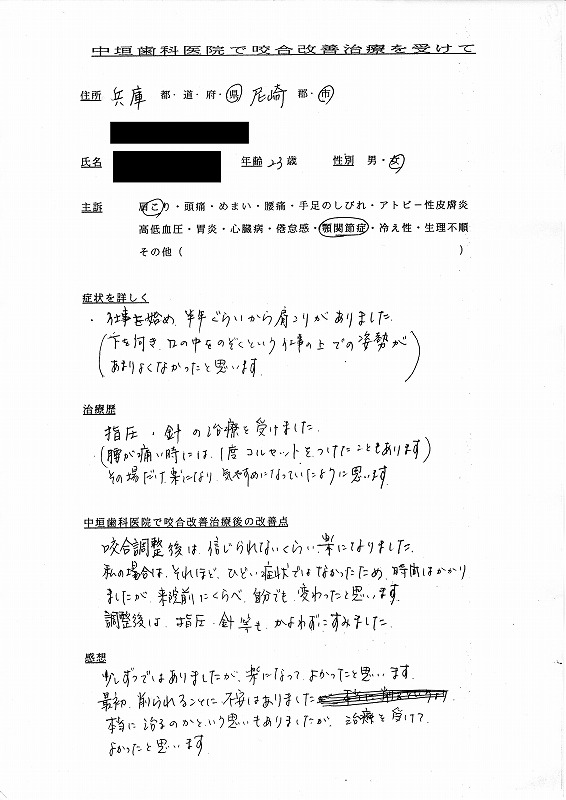 中垣歯科医院で咬合改善治療を受けて
住所 兵庫 都・道・府・県 尼崎 郡・市
氏名 年齢 23歳 性別 男・女
主訴 肩こり・頭痛・めまい・腰痛・手足のしびれ・アトピー性皮膚炎
高低血圧・胃炎・心臓病・倦怠感・顎関節症・冷え性・生理不順
その他( )
症状を詳しく
・仕事を始め、半年ぐらいから肩コリがありました。
(下を向き、口の中をのぞくという仕事の上での姿勢が
あまりよくなかったと思います。)
治療歴
指圧・針の治療を受けました。
(腰が痛い時には、1度コルセットをつけたこともあります)
その場だけ楽になり、気やすめになっていたように思います。
中垣歯科医院で咬合改善治療後の改善点
咬合調整後は、信じられないくらい楽になりました。
私の場合は、それほど、ひどい症状ではなかったため、時間はかかり
ましたが、来院前にくらべ、自分でも、変わったと思います。
調整後は、指圧・針等も、かよわずにすみました。
感想
少しずつではありましたが、楽になって、よかったと思います。
最初、削られることに不安はありました
本当に治るのかという思いもありましたが、治療を受けて、
よかったと思います。